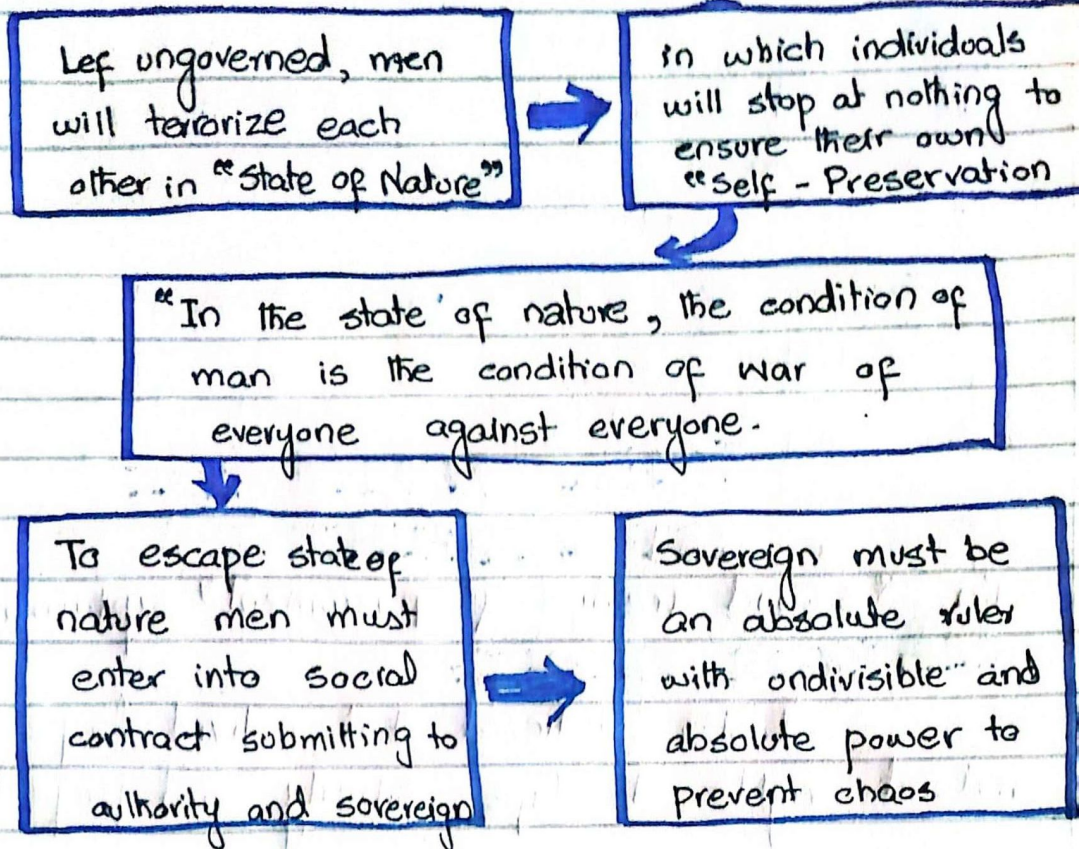 Lef ungoverned, men
will terrorize each
other in “State of Nature”
in which individuals
will stop at nothing to
ensure their own
“Self - Preservation
“In the state of nature, the condition of
man is the condition of war of
everyone against everyone.
To escape state of
nature men must
enter into social
contract submitting to
authority and sovereign
Sovereign must be
an absolute ruler
with ondivisible and
absolute power to
prevent chaos